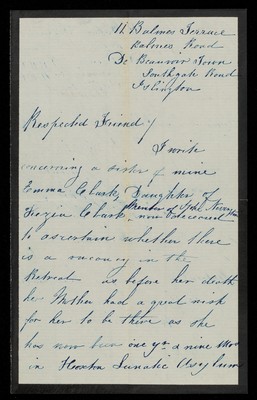 11 Balmes Terrace
Balmes Road
De Beauvoir Town
Southgate Road
Islington
Respected Friend /
I write
concerning a sister of mine
Emma Clark, Daughter of
Member of Stoke Newington
Clark, now deceased
to ascertain whether there
is a vacancy in the
Retreat as before her death
her Mother had a great wish
for her to be there as she
has now been one yr & nine
in Hoxton Lunatic Asylum